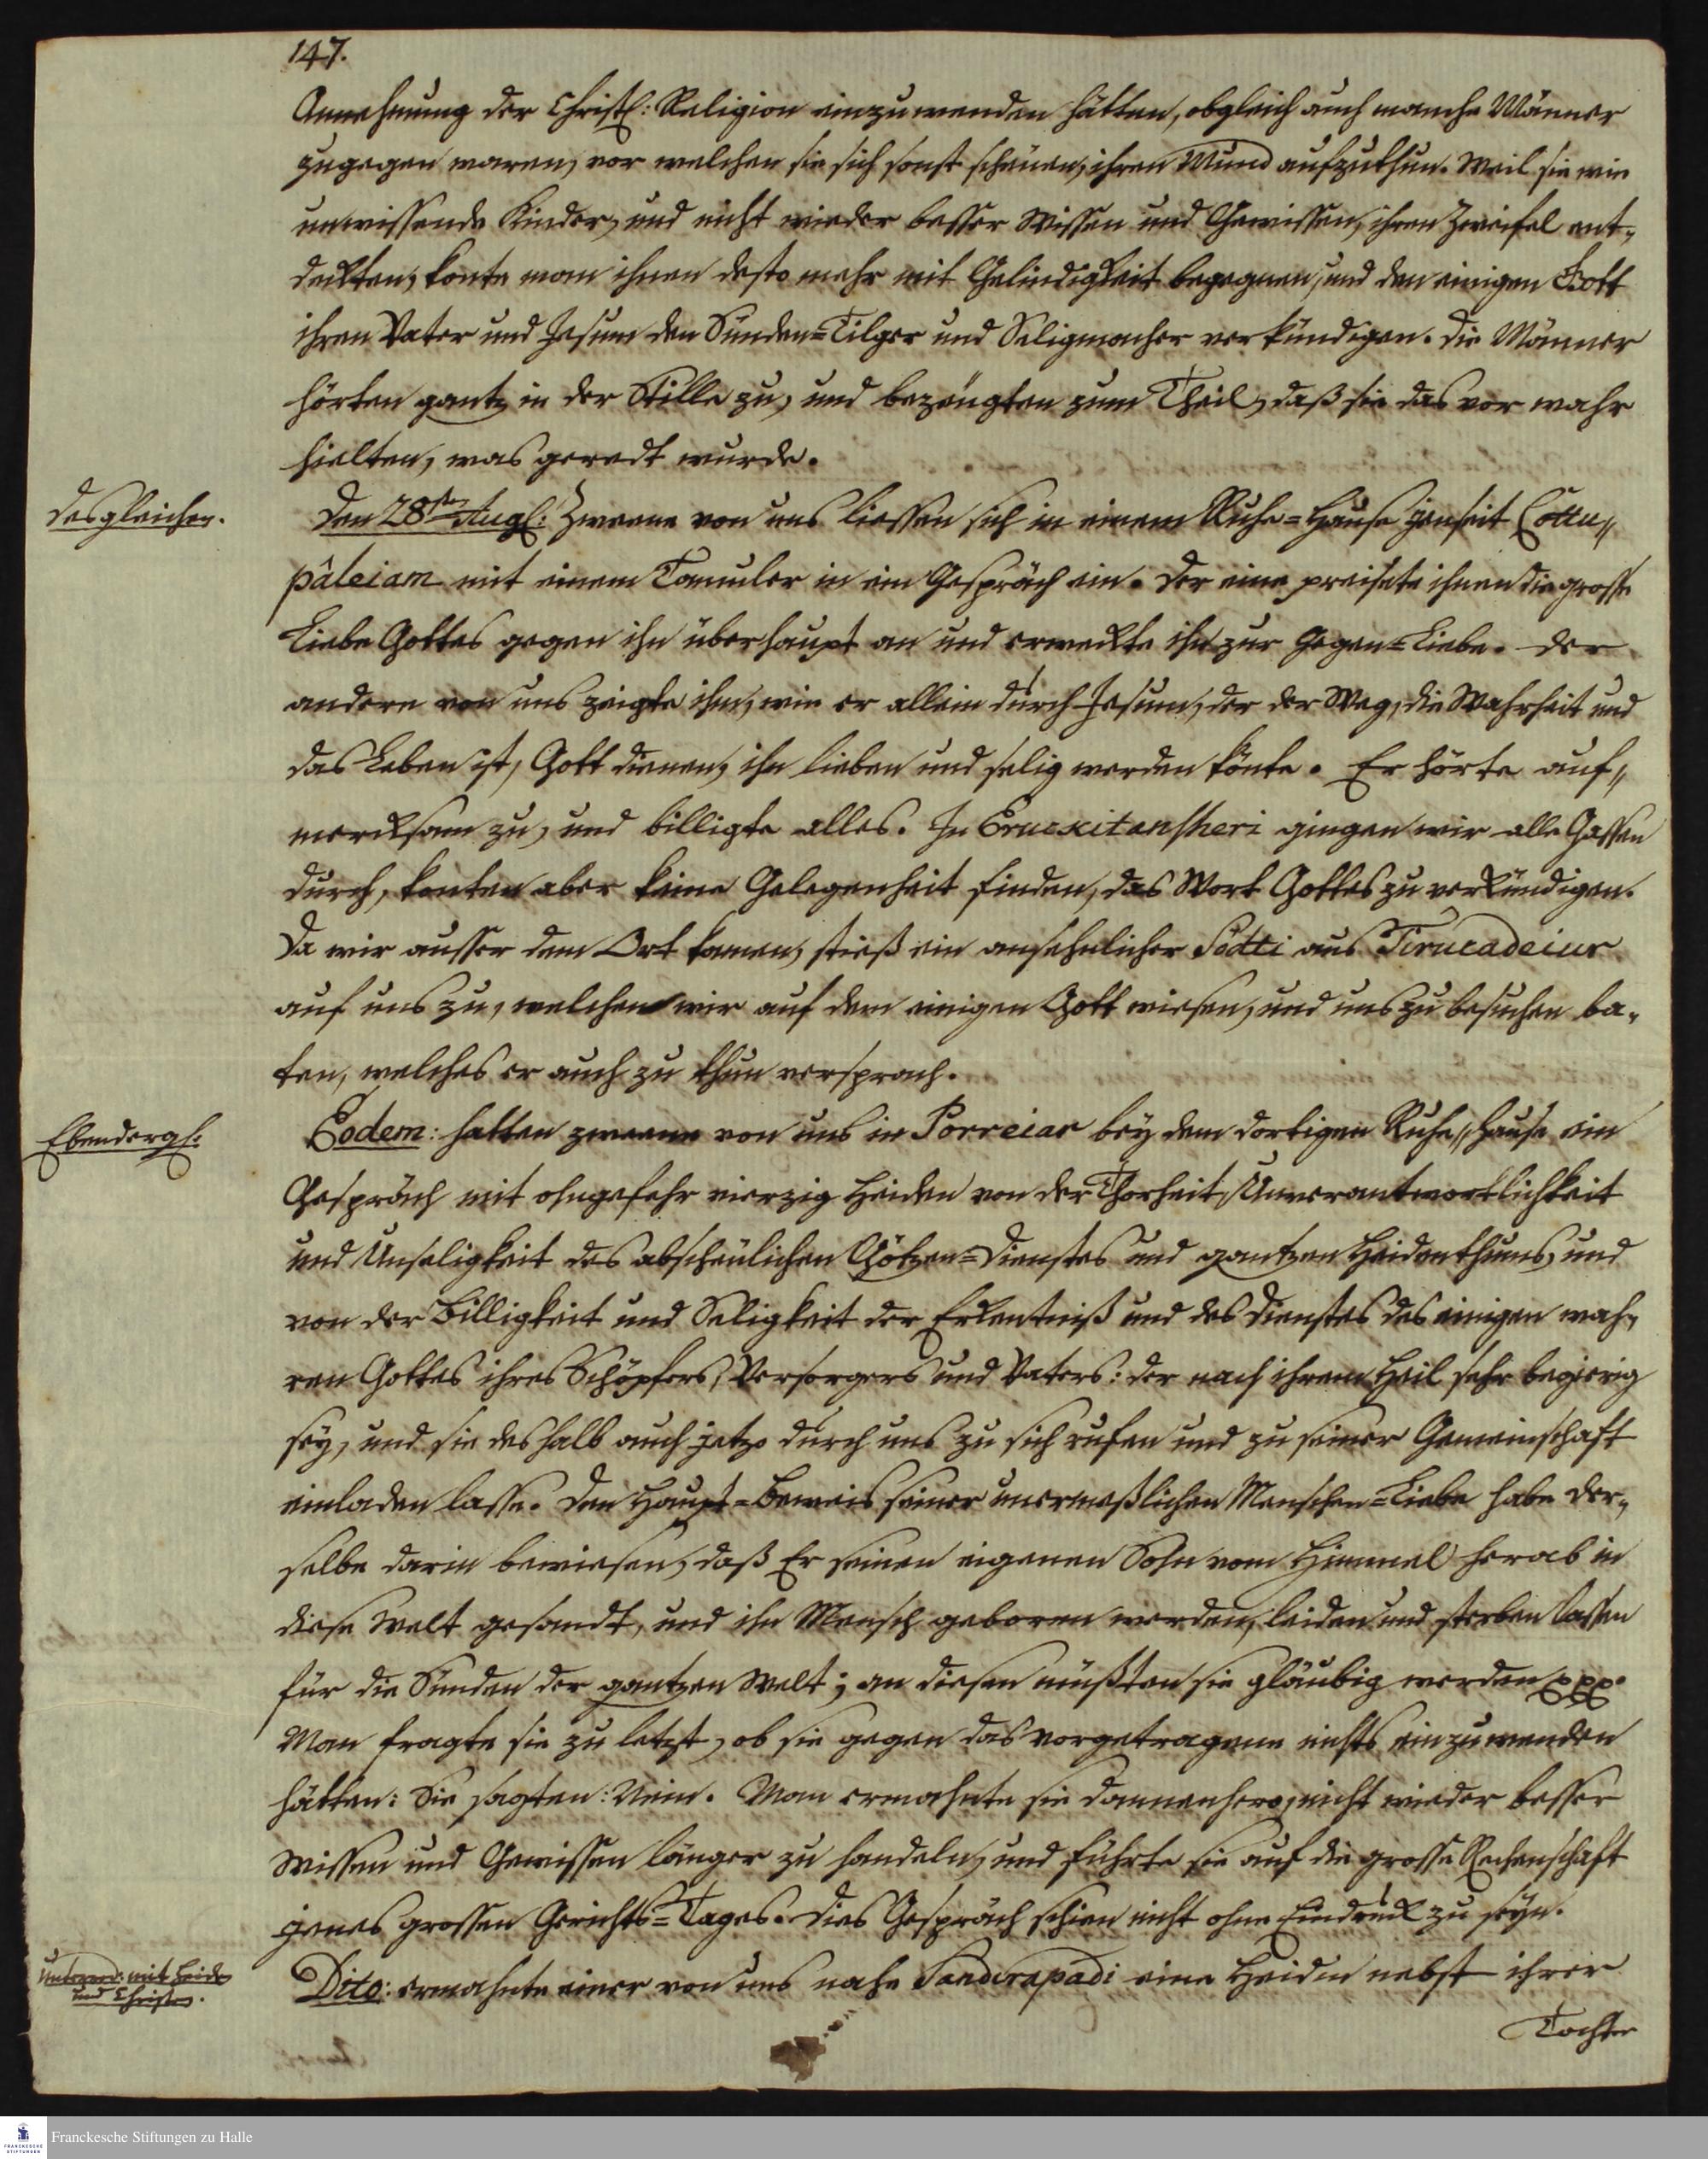 147.
Annehmung der Christl: Religion einzuwenden hätten, obgleich auch manche Männer
zugegen waren, vor welchen sie sich sonst scheuen, ihren Mund aufzuthun. Weil sie wie
unwissende Kinder, und nicht wieder besser Wissen und Gewissen, ihren Zweifel ent-
deckten, konte man ihnen desto mehr mit Gelindigkeit begegnen, und den einigen Gott
ihren Vater und Jesum den Sünden-Tilger und Seligmacher verkündigen. Die Männer
hörten gantz in der Stille zu, und bezeugten zum Theil, daß sie das vor wahr
hielten, was geredt wurde.
desgleichen.
Den 28sten Aug: Zweene von uns liessen sich in einem Ruhe-Hause jenseit Cottu-
pâleiam mit einem Tamuler in ein Gespräch ein. Der eine preisete ihnen die grosse
Liebe Gottes gegen ihn überhaupt an und erweckte ihn zur Gegen-Liebe. Der
andere von uns zeigte ihm, wie er allein durch Jesum, der der Weg, die Wahrheit und
das Leben ist, Gott dienen, ihn lieben und selig werden könte. Er hörte auf-
mercksam zu, und billigte alles. In Eruckitanscheri gingen wir alle Gassen
durch, konten aber keine Gelegenheit finden, das Wort Gottes zu verkündigen.
Da wir ausser dem Ort kamen, stieß ein ansehnlicher Södti aus Tirucadeiur
auf uns zu, welchen wir auf den einigen Gott wiesen, und uns zu besuchen ba-
ten, welches er auch zu thun versprach.
Ebendergl:
Eodem: hatten zweene von uns in Porreiar bey dem dortigen Ruhe-Hause ein
Gespräch mit ohngefehr vierzig Heiden von der Thorheit, Unverantwortlichkeit
und Unseligkeit des abscheulichen Götzen-Dienstes und gantzen Heidenthums, und
von der Billigkeit und Seligkeit der Erkentniß und des Dienstes des einigen wah-
ren Gottes ihres Schöpfers, Versorgers und Vaters: der nach ihrem Heil sehr begierig
sey, und sie deshalb auch jetzo durch uns zu sich rufen und zu seiner Gemeinschaft
einladen lasse. Den Haupt-Beweis seiner unermeßlichen Menschen-Liebe habe der-
selbe darin bewiesen, daß Er seinen eigenen Sohn vom Himmel herab in
diese Welt gesandt, und ihn Mensch geboren werden, leiden und sterben lassen
für die Sünden der gantzen Welt; an diesen müßten sie gläubig werden ppp.
Man fragte sie zu letzt, ob sie gegen das vorgetragene nichts einzuwenden
hätten: Sie sagten: Nein. Man ermahnte sie dannenhero, nicht wieder besser
Wissen und Gewissen länger zu handeln, und führte sie auf die grosse Rechenschaft
jenes grossen Gerichts-Tages. Dies Gespräch schien nicht ohne Eindruck zu seyn.
Unterred: mit Heiden
und Christen.
Dito: ermahnte einer von uns nahe Sandirapadi eine Heidin nebst ihrer
Tochter
Franckesche Stiftungen zu Halle